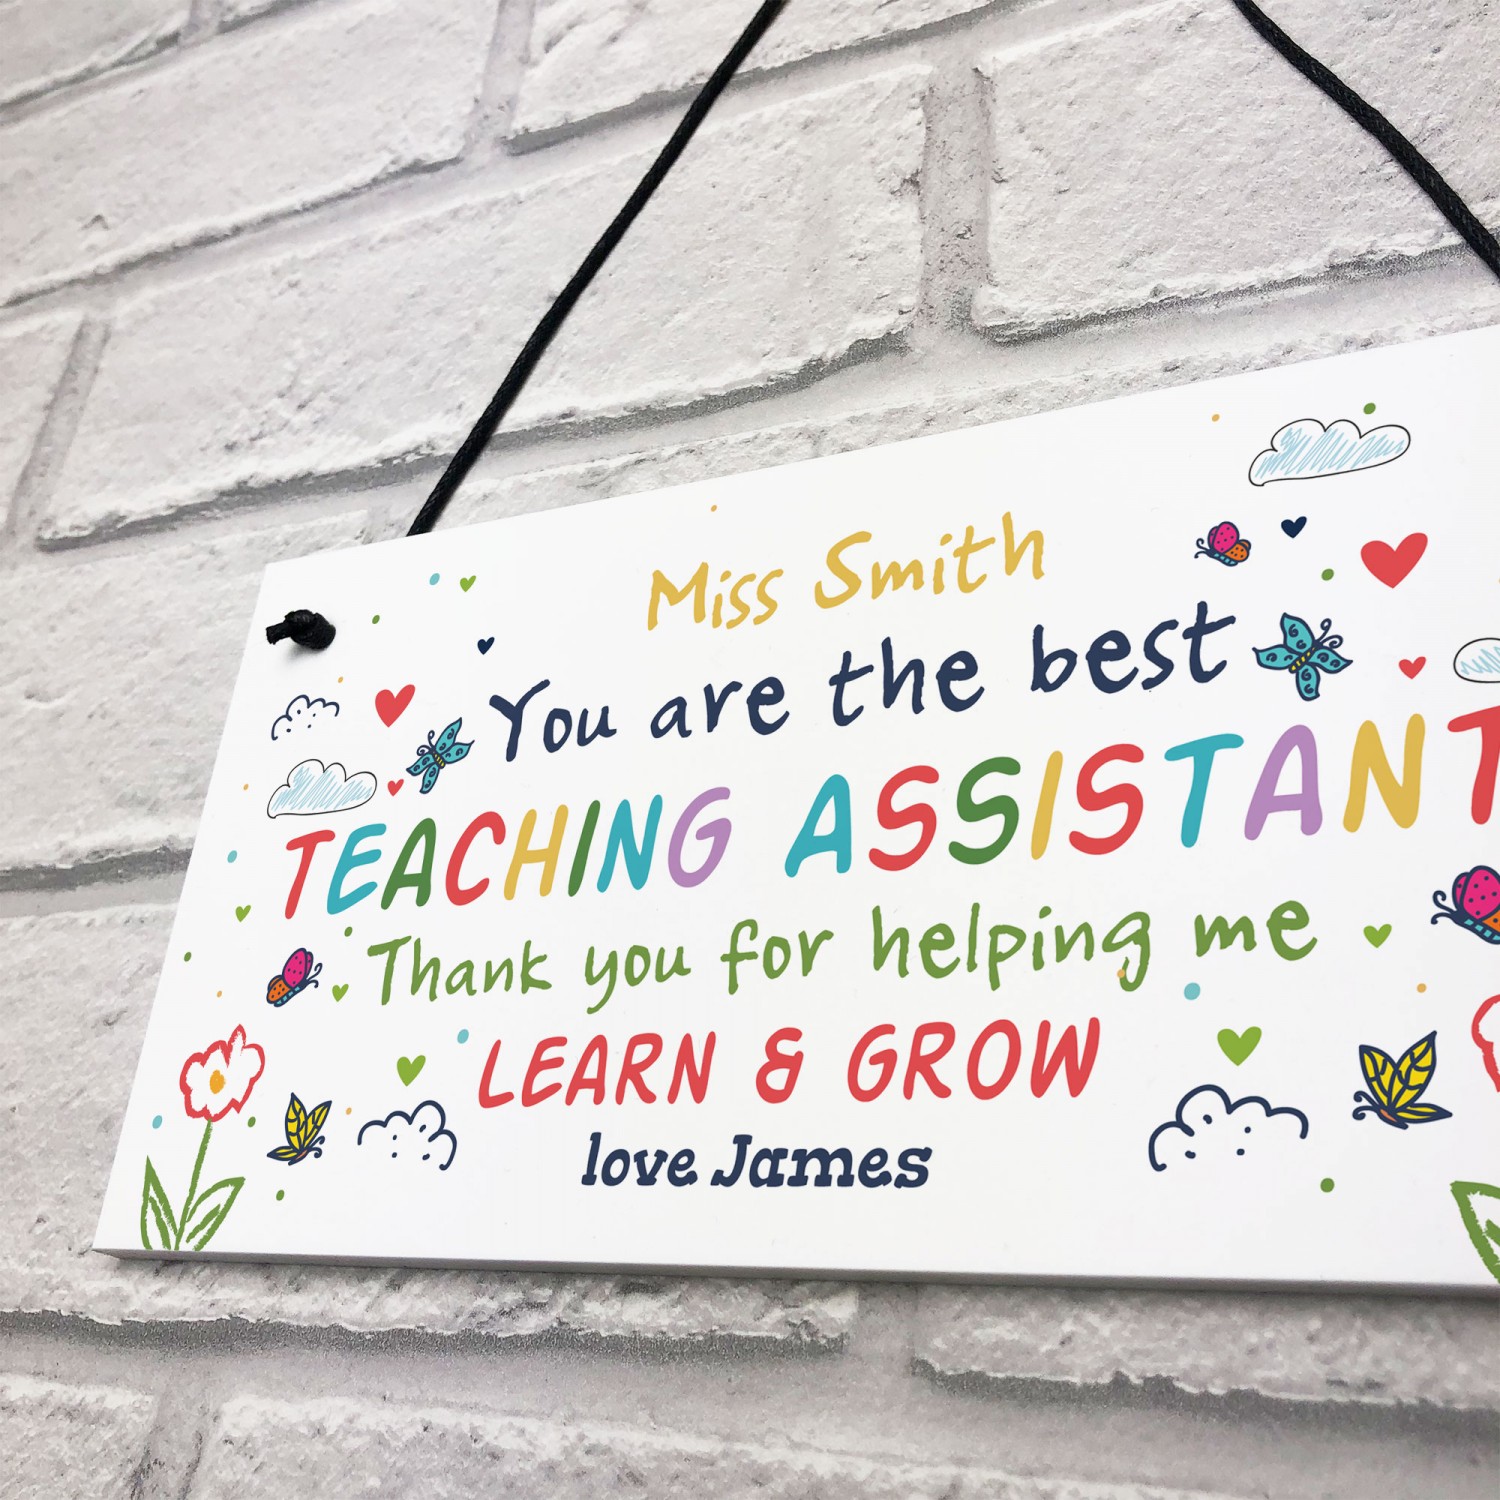 Miss Smith
You are the best
TEACHING ASSISTANT
Thank you for helping me
LEARN & GROW
love James